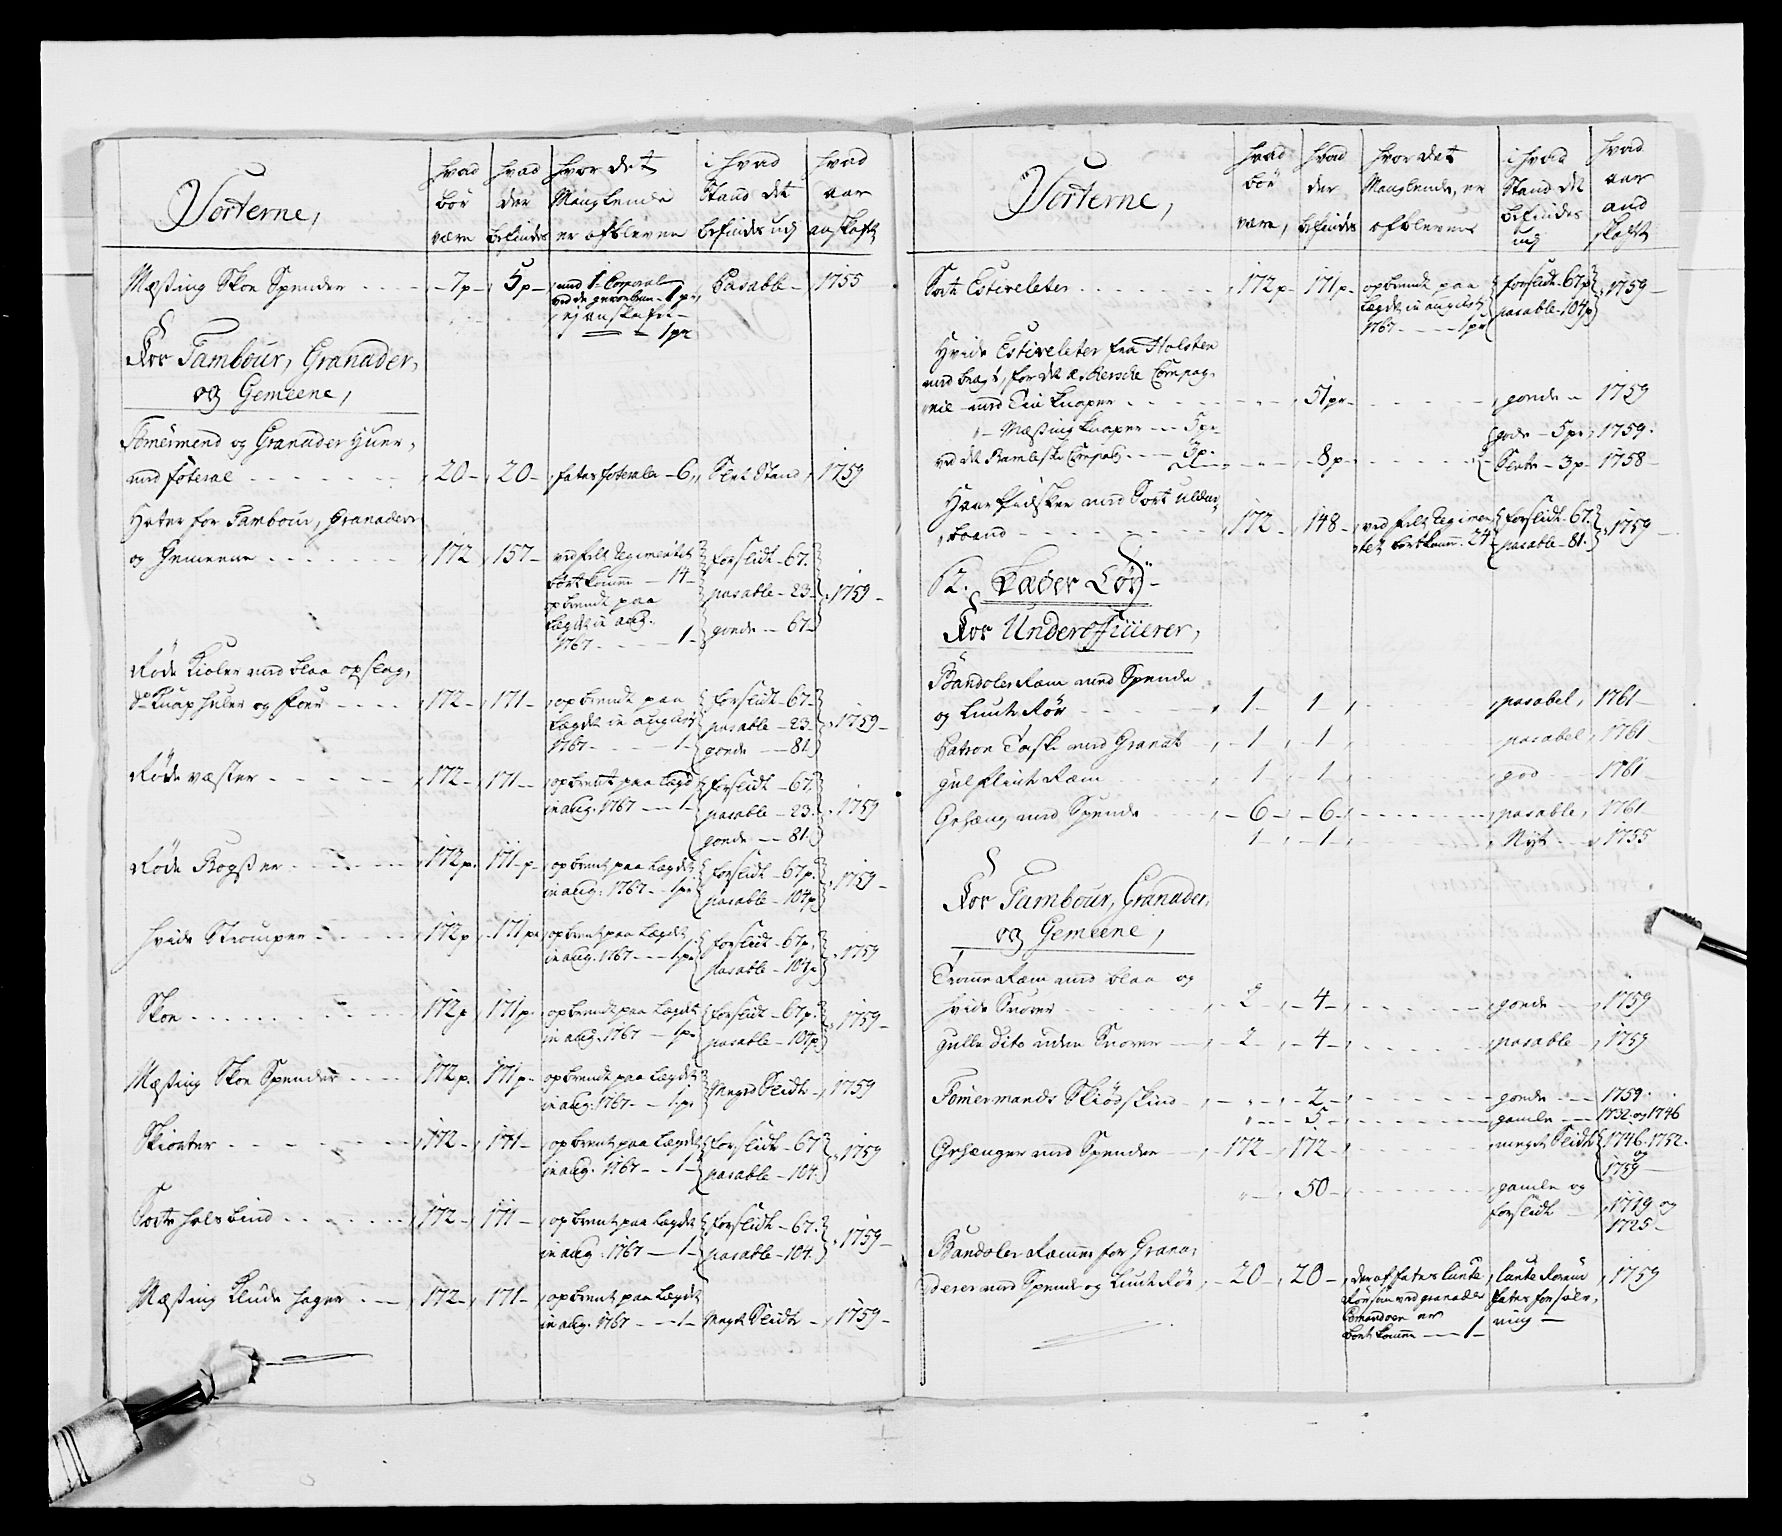 Sorterne,
hvad bør være
hvad der befindes
hvor det Manglende er afbleven
i hvad Stand det befindes udj
hvad aar anskaft
Mæssing Skoe Spender - - - - 7 p - 5 p - med 1 Corporal
1 p
ej anskaffet
1 pr
Pasable - 1755
For Tambour, Granader,
og Gemeene,
Tømermend og Granader Huer,
med foteral - - - 20 - 20 - fattes foteraler - 6, Slet Stand, 1759
Hatter for Tambour, Granaderer
og Gemeene - - - 172 157 - ved felt Regimentet
bortkomne - 14 -
opbrendt paa
Lægdet in aug.
1767 - - - 1 -
forslidt - 67.
pasable - 23 -
goede - 67 -
1759 -
Røde Kioler med blaa opslag,
do Knaphuler og foer - - - 172 - 171 - opbrendt paa
Lægdet in augusti
1767 - - - 1 -
forslidt - 67 -
pasable - 23
goede - 81
1759 -
Røde væster - - - 172 - 171 - opbrendt paa Lægd
in aug. 1767 - - 1 -
forslidt - 67.
pasable - 23.
goede - 81.
1759
Røde Bogsser - - - 172 p. 171 p - opbrent paa Lægdet
in aug. 1767 - 1 pr
forslidt - 67 p.
pasable - 104 p
1759 -
hvide Strømper - - - 172 p 171 pr opbrent paa Lægdet
in aug. 1767 - - 1 pr
forslidt - 67 p.
pasable - 104 p
1759
Skoe - - - 172 p 171 p - opbrendt paa Lægdet
in aug. 1767 - 1 p
forslidt - 67 p.
pasable - 104 p.
1759 -
Mæssing Skoe Spender - - - 172 p. 171 p - opbrendt paa Lægdet
in aug. 1767 - 1 p.
Meget Slidt - 1759
Skiorter - - - 172 - 171 - opbrent paa Lægdet
in aug. 1767 - - 1 -
forslidt - 67
pasable - 104.
1759
Sorte halsbind - - - 172 - 171 - opbrent paa Lægdet
in aug. 1767 - 1 -
forslidt - 67.
pasable - 104.
1759 -
Mæssing Klude hager - - 172 - 171 - opbrent paa Lægdet
in aug. 1767 - - 1 -
Meget Slidt - 1759 -
Sorterne,
hvad bør være,
hvad der befindes
hvor det Manglende, er afbleven
i hvad Stand det befindes udj
hvad aar and skafft
Sorte Estiveletter - - - 172 p - 171 p - opbrendt paa
Lægdet in augusti
1767 - - 1 pr
forslidt - 67 p
pasable - 104 p
1759 -
Hvide Estiveletter fra Holsten
med bragt, for det Compag,
nie - med Tin Knaper - - - 51 pr - - - goede - 1759
- Mæssing Knaper - - 5 pr -
gode - 5 pr, 1759.
ved det Bambleske Compag - - 3 p. - - 8 p - - - Slette - 3 p - 1758 -
Haar Pidsker med Sort ulden
baand - - - 172 - 148 - ved felt Regimen
tet bortkomm. 24
forslidt - 67.
pasable - 81.
1759 -
P. Læder Tøy -
For Underofficierer,
Bandoler Rem med Spende
og Lunte Rør - - - 1 - 1 - - - pasabel, 1761 -
Patron Taske med Granat - 1 - 1 - pasabel, 1761
guel Flint Rem - 1 - 1 - - god - 1761 -
Gehæng med Spende - - 6 - 6 - - - pasable, 1761
1 - 1 - - - Nyt - 1755
For Tambour, Granader,
og Gemeene,
Tromme Rem med blaa og
hvide Snorer - - - 2 - 4 - - - goede - 1759
gulle dito uden Snorer - 2 - 4 - - - pasable - 1759
Tømermands Skiødskind - - - 2 - - - goede - - 1759 -
5 - - - gamle - - 1732 og 1746
Gehænger med Spender - 172 - 172 - - - meget Slidt 1746. 1752.
og
1759 -
- 50 - - - gamle og
forslidt - 1719 og
1725
Bandoler Remmer for Grana,
derer med Spende og Lunte Rør - 20 - 20 - deraf fattes Lunte
Rør som ved granader
Comandoen er
bortkomne - - 1 -
Lunte Rørene
fattes for sølv,
ring -
1759